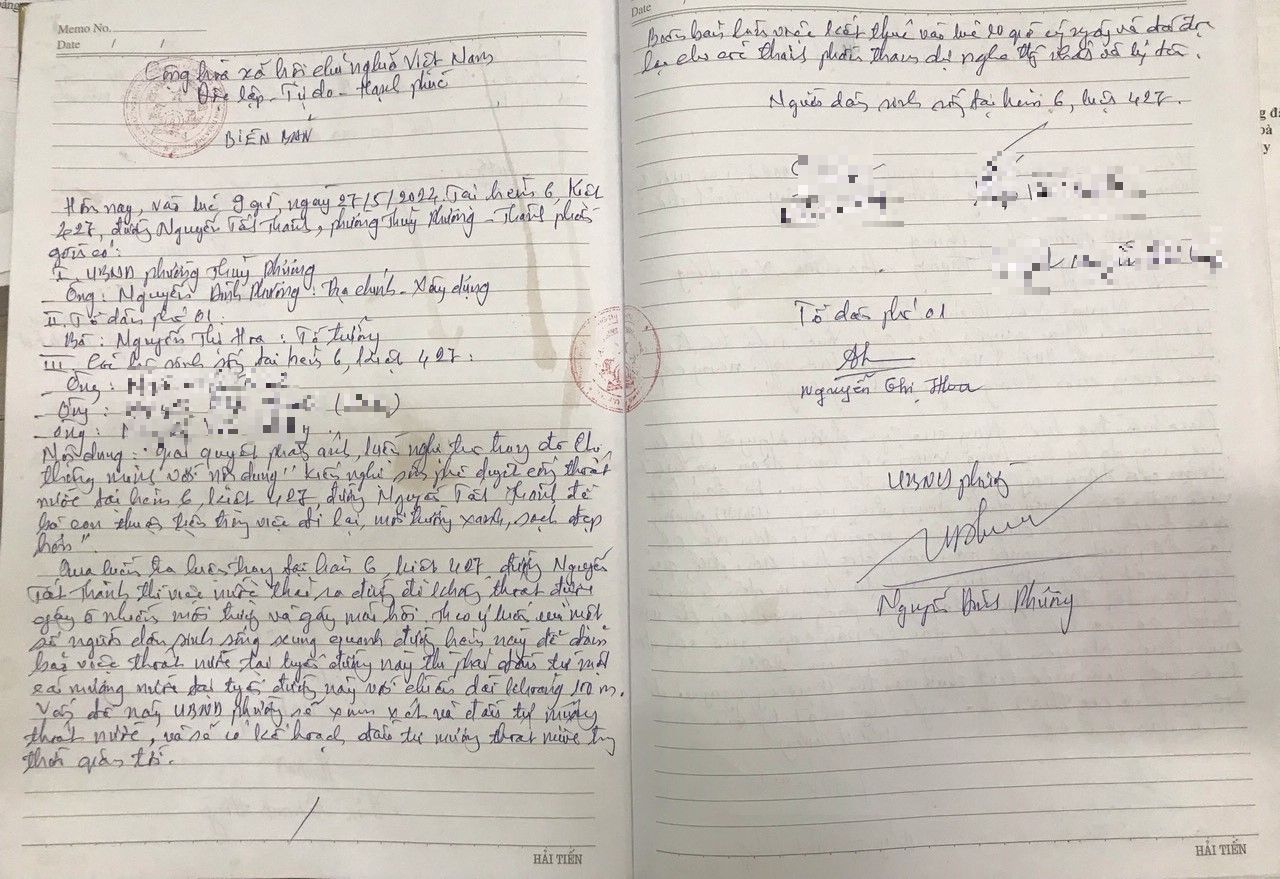 Memo No.
Date / /
Cộng hoà xã hội chủ nghĩa Việt Nam
Độc lập - Tự do - Hạnh phúc
BIÊN BẢN
Hôm nay, vào lúc 9 giờ, ngày 27/5/2022, Tại hẻm 6, Kiệt
427, đường Nguyễn Tất Thành, phường Thuỷ Phương - Thành phần
gồm có:
I. UBND phường Thuỷ Phương
Ông: Nguyễn Đình Phương: Địa chính - Xây dựng
II. Tổ dân phố 01:
Bà: Nguyễn Thị Hoa: Tổ trưởng
III. Các hộ sinh sống tại hẻm 6, kiệt 427:
Ông:
Ông:
Ông:
Nội dung: "Giải quyết phản ánh, kiến nghị trên trang đô thị
thông minh với nội dung "Kiến nghị sớm phê duyệt cống thoát
nước tại hẻm 6, kiệt 427 đường Nguyễn Tất Thành để
bà con thuận tiện trong việc đi lại, môi trường xanh, sạch đẹp
hơn".
Qua kiểm tra hiện nay tại hẻm 6, kiệt 427 đường Nguyễn
Tất Thành thì việc nước thải ra đường đi không thoát được
gây ô nhiễm môi trường và gây mùi hôi. Theo ý kiến của một
số người dân sinh sống xung quanh đường hẻm này để đảm
bảo việc thoát nước tại tuyến đường này thì phải đầu tư một
cái mương nước tại tuyến đường này với chiều dài khoảng 100 m.
Vấn đề này UBND phường sẽ xem xét và đầu tư mương
thoát nước, và sẽ có kế hoạch đầu tư mương thoát nước trong
thời gian tới.
HẢI TIẾN
Date /
Biên bản làm việc kết thúc vào lúc 10 giờ cùng ngày và đã đọc
lại cho các thành phần tham dự nghe thống nhất và ký tên.
Người dân sinh sống tại hẻm 6, kiệt 427.
Tổ dân phố 01
Nguyễn Thị Hoa
UBND phường
Nguyễn Đình Phương
HẢI TIẾN